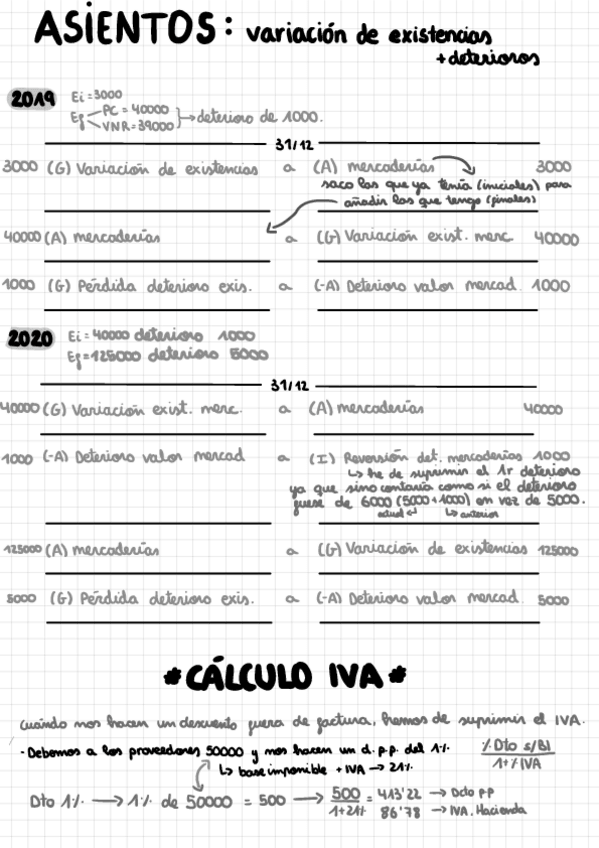 ASIENTOS: variación de existencias
+ deterioros
2019 Ei = 3000
Ef PC = 40000
VNR = 39000 → deterioro de 1000.
31/12
3000 (G) Variación de existencias a (A) mercaderías 3000
saco las que ya tenía (iniciales) para
añadir las que tengo (finales)
40000 (A) mercaderías a (G) Variación exist. merc. 40000
1000 (G) Pérdida deterioro exis. a (-A) Deterioro valor mercad. 1000
2020 Ei = 40000 deterioro 1000
Ef = 125000 deterioro 5000
31/12
40000 (G) Variación exist. merc. a (A) mercaderías 40000
1000 (-A) Deterioro valor mercad a (I) Reversión det. mercaderías 1000
↳ he de suprimir el 1r deterioro
ya que sino contaría como si el deterioro
fuese de 6000 (5000 + 1000) en vez de 5000.
actual ↵ ↳ anterior
125000 (A) mercaderías a (G) Variación de existencias 125000
5000 (G) Pérdida deterioro exis. a (-A) Deterioro valor mercad. 5000
* CÁLCULO IVA *
Cuándo nos hacen un descuento fuera de factura, hemos de suprimir el IVA.
- Debemos a los proveedores 50000 y nos hacen un d.p.p. del 1%. % Dto s/BI
↳ base imponible + IVA → 21% 1 + % IVA
Dto 1% → 1% de 50000 = 500 → 500 = 413'22 → Dcto p.p
1+21% 86'78 → IVA. Hacienda